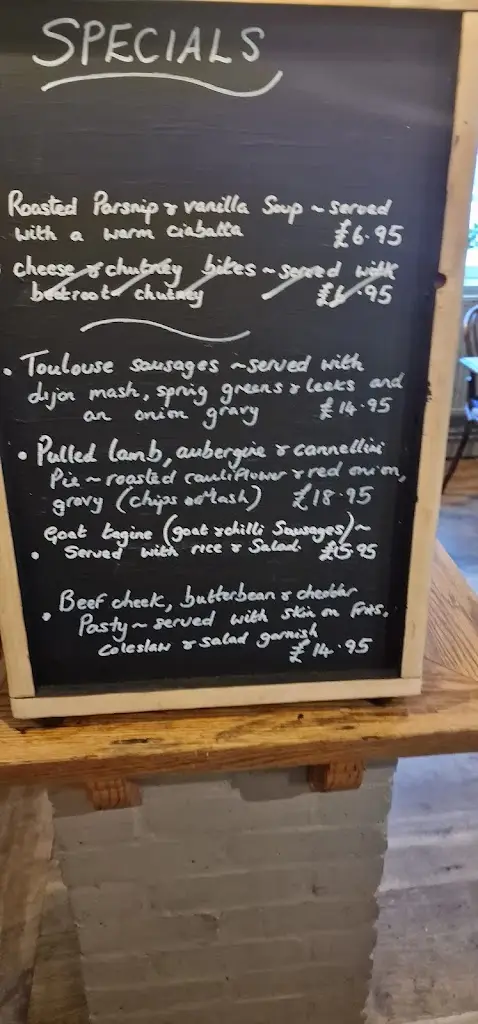 SPECIALS
Roasted Parsnip & vanilla Soup ~ served
with a warm ciabatta £6.95
cheese & chutney bites ~ served with
beetroot chutney £6.95
• Toulouse sausages ~ served with
dijon mash, spring greens & leeks and
an onion gravy £14.95
• Pulled lamb, aubergine & cannellini
Pie ~ roasted cauliflower & red onion,
gravy (chips or Mash) £18.95
Goat tagine (goat & chilli Sausages) ~
• Served with rice & Salad. £15.95
Beef cheek, butterbean & cheddar
• Pasty ~ served with skin on fries,
Coleslaw & salad garnish
£14.95